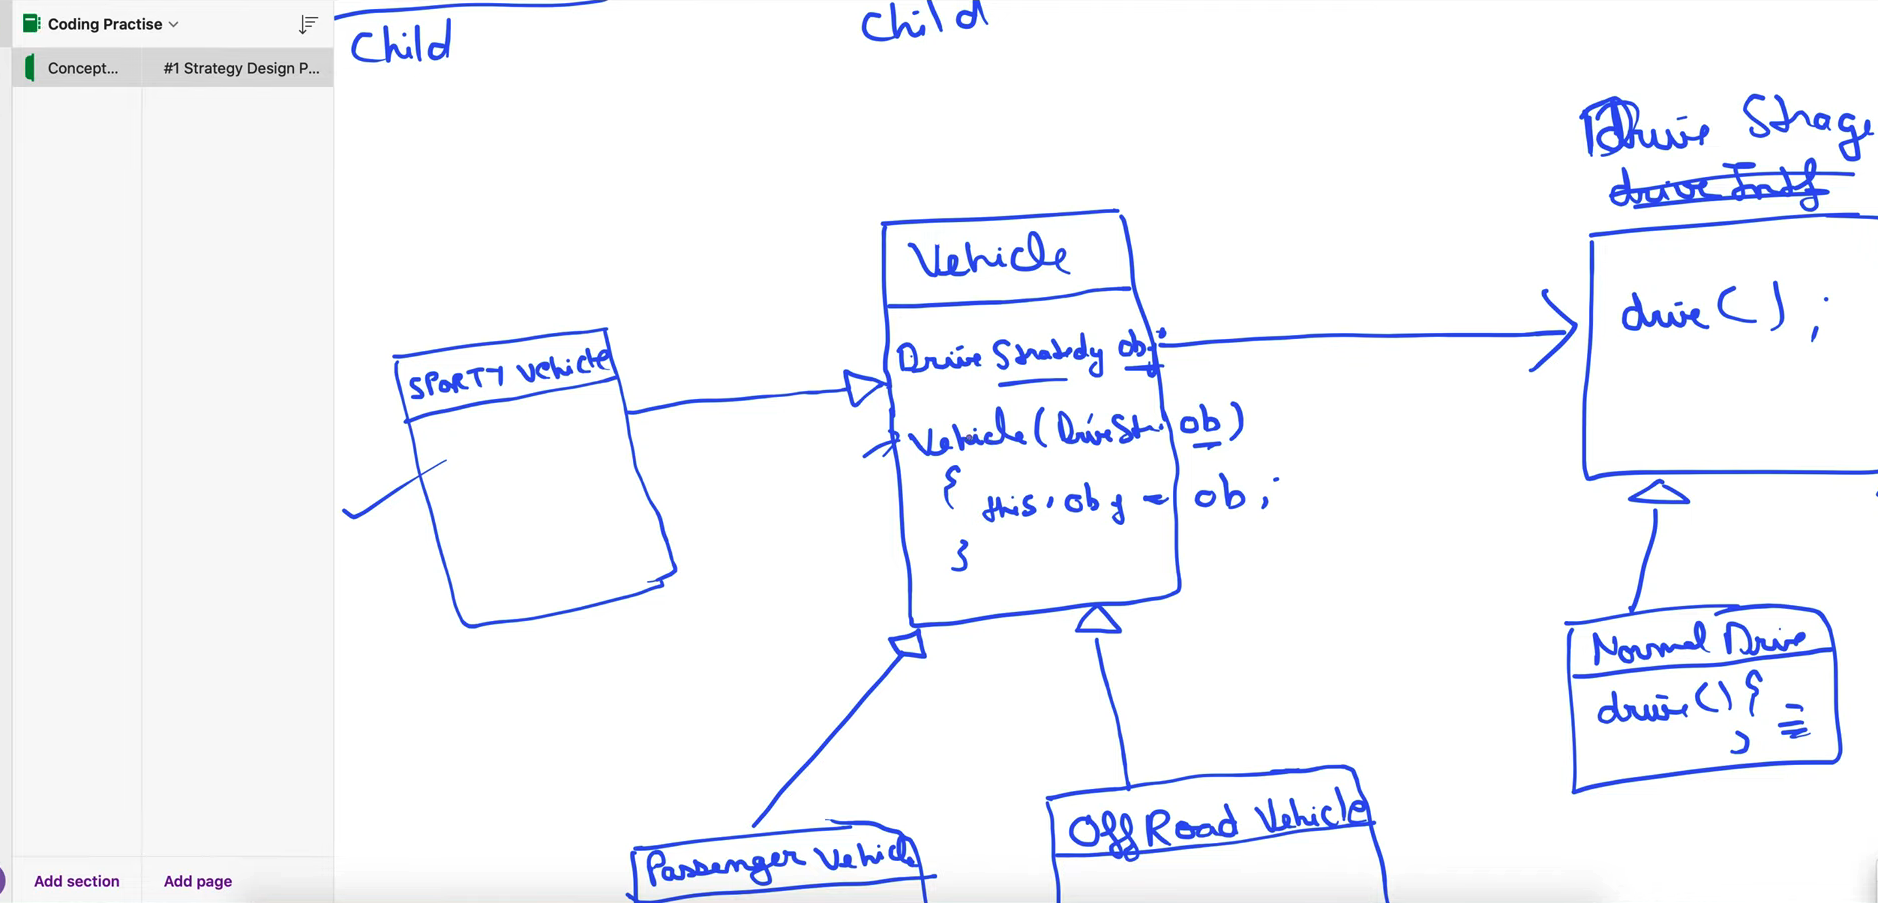 Coding Practise
Concept...
#1 Strategy Design P...
Add section
Add page
Child
Child
Drive Strage
drive Intf
drive ( ) ;
Vehicle
Drive Stratedy obj
Vehicle ( DriveStr. ob )
{
this . obj = ob ;
}
SPORTY Vehicle
Normal Drive
drive ( ) {
}
Passenger Vehicle
Off Road Vehicle